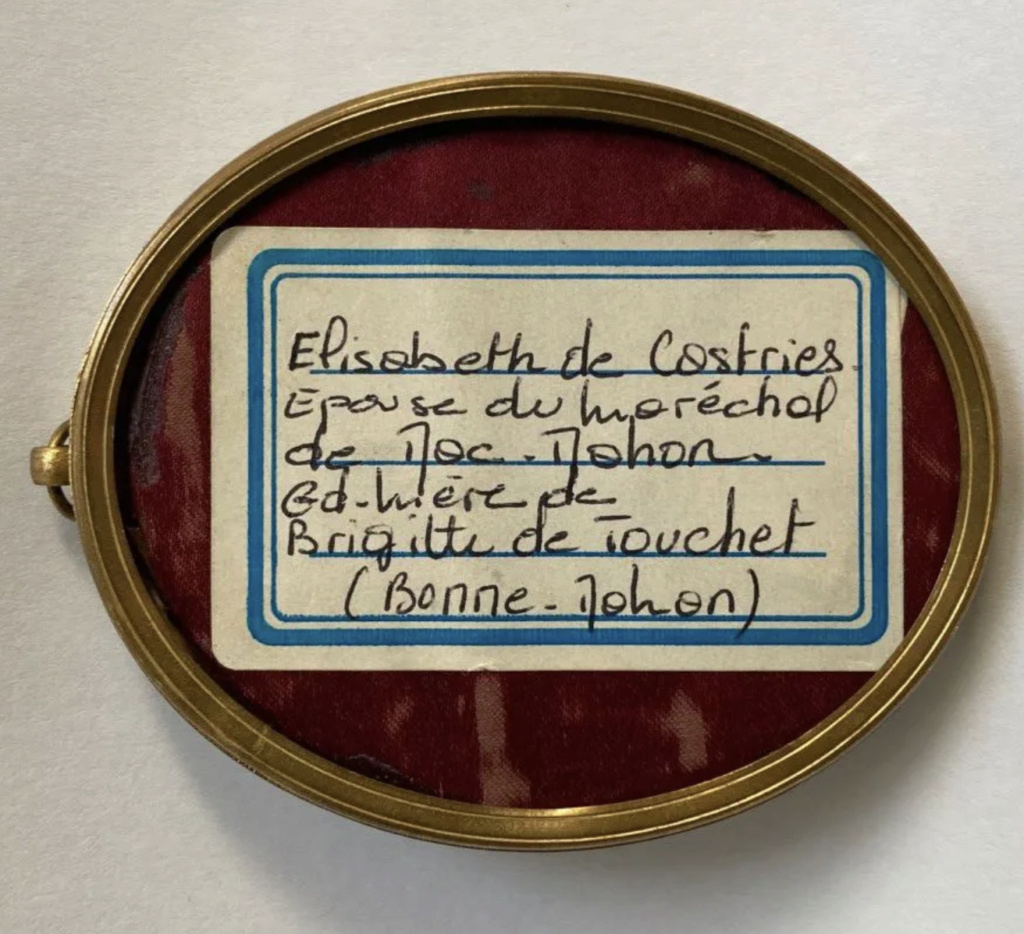 Elisabeth de Castries.
Epouse du maréchal
de Mac-Mahon.
Gd-Mère de
Brigitte de Touchet
(Bonne-Mahon)